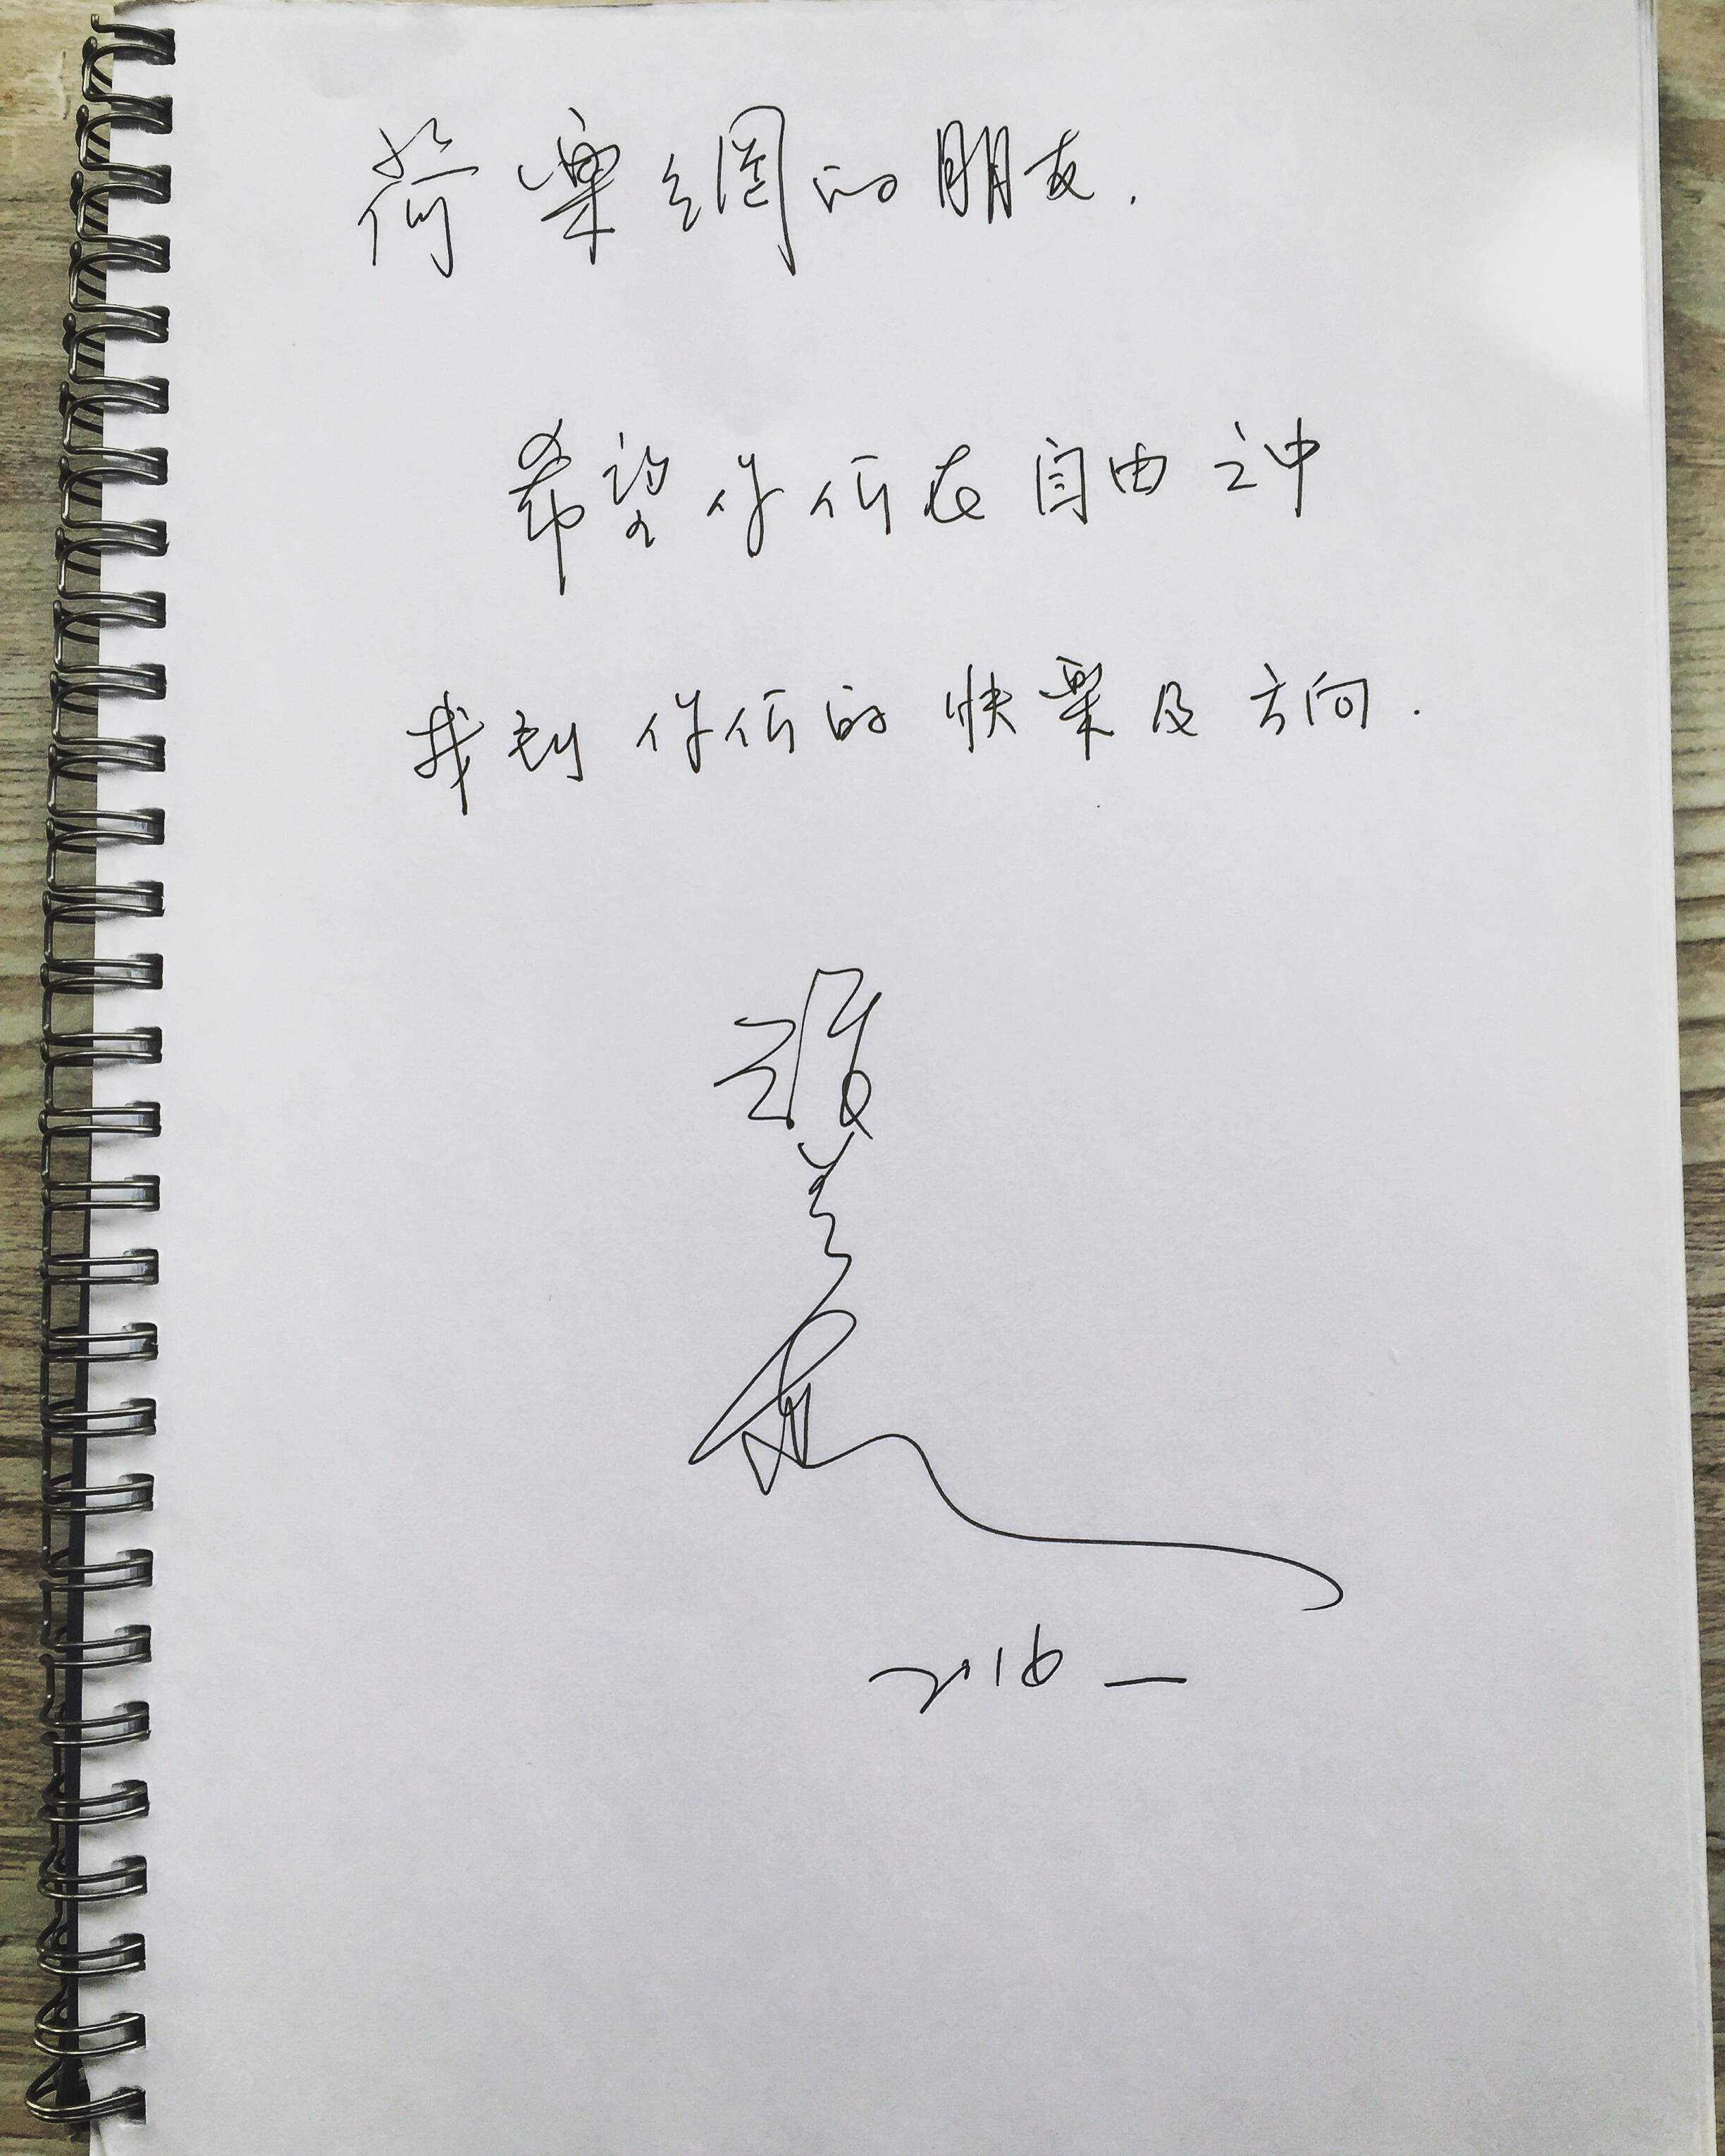 荷樂網的朋友.
希望你们在自由之中
找到你们的快樂及方向.
2016